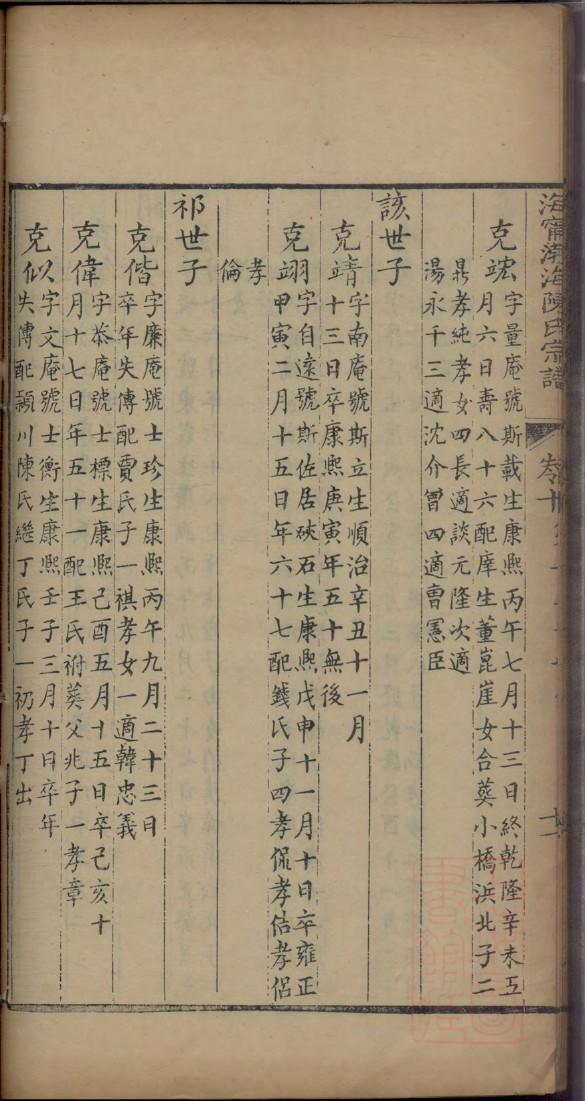 海甯渤海陳氏宗譜
克浤字量庵號斯載生康熙丙午七月十三日終乾隆辛未五
月六日壽八十六配庠生董崑崖女合葬小橋浜北子二
昇孝純孝女四長適談元隆次適
湯永千三適沈介曾四適曹憲臣
該世子
克靖字南庵號斯立生順治辛丑十一月
十三日卒康熙庚寅年五十無後
克翊字自遠號斯佐居硤石生康熙戊申十一月十日卒雍正
甲寅二月十五日年六十七配錢氏子四孝侃孝佶孝侶
孝
倫
祁世子
克偕字廉庵號士珍生康熙丙午九月二十三日
卒年失傳配賈氏子一祺孝女一適韓忠義
克偉字恭庵號士標生康熙己酉五月十五日卒己亥十
月十七日年五十一配王氏祔葬父兆子一孝章
克似字文庵號士衡生康熙壬子三月十日卒年
失傳配潁川陳氏繼丁氏子一礽孝丁出